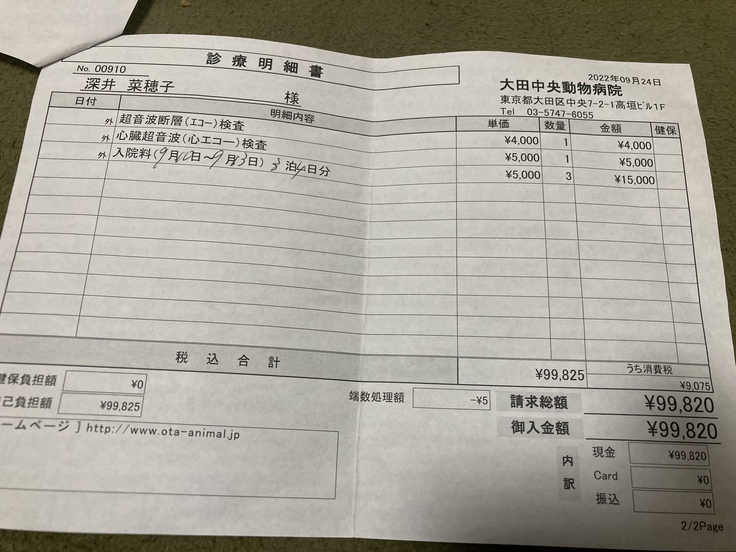 診療明細書
No. 00910
深井 菜穂子 様
2022年09月24日
大田中央動物病院
東京都大田区中央7-2-1高垣ビル1F
Tel 03-5747-6055
日付 明細内容 単価 数量 金額 健保
外 超音波断層(エコー)検査 ¥4,000 1 ¥4,000
外 心臓超音波(心エコー)検査 ¥5,000 1 ¥5,000
外 入院料(9月10日～9月13日) 3泊4日分 ¥5,000 3 ¥15,000
税込合計 ¥99,825 うち消費税 ¥9,075
健保負担額 ¥0
己負担額 ¥99,825
端数処理額 -¥5
請求総額 ¥99,820
御入金額 ¥99,820
ームページ ] http://www.ota-animal.jp
内訳
現金 ¥99,820
Card ¥0
振込 ¥0
2/2Page